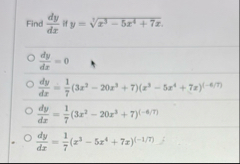 Find dy/dx if y = ⁷√(x³ − 5x⁴ + 7x).
dy/dx = 0
dy/dx = 1/7 (3x² − 20x³ + 7)(x³ − 5x⁴ + 7x)^(−6/7)
dy/dx = 1/7 (3x² − 20x³ + 7)^(−6/7)
dy/dx = 1/7 (x³ − 5x⁴ + 7x)^(−1/7)